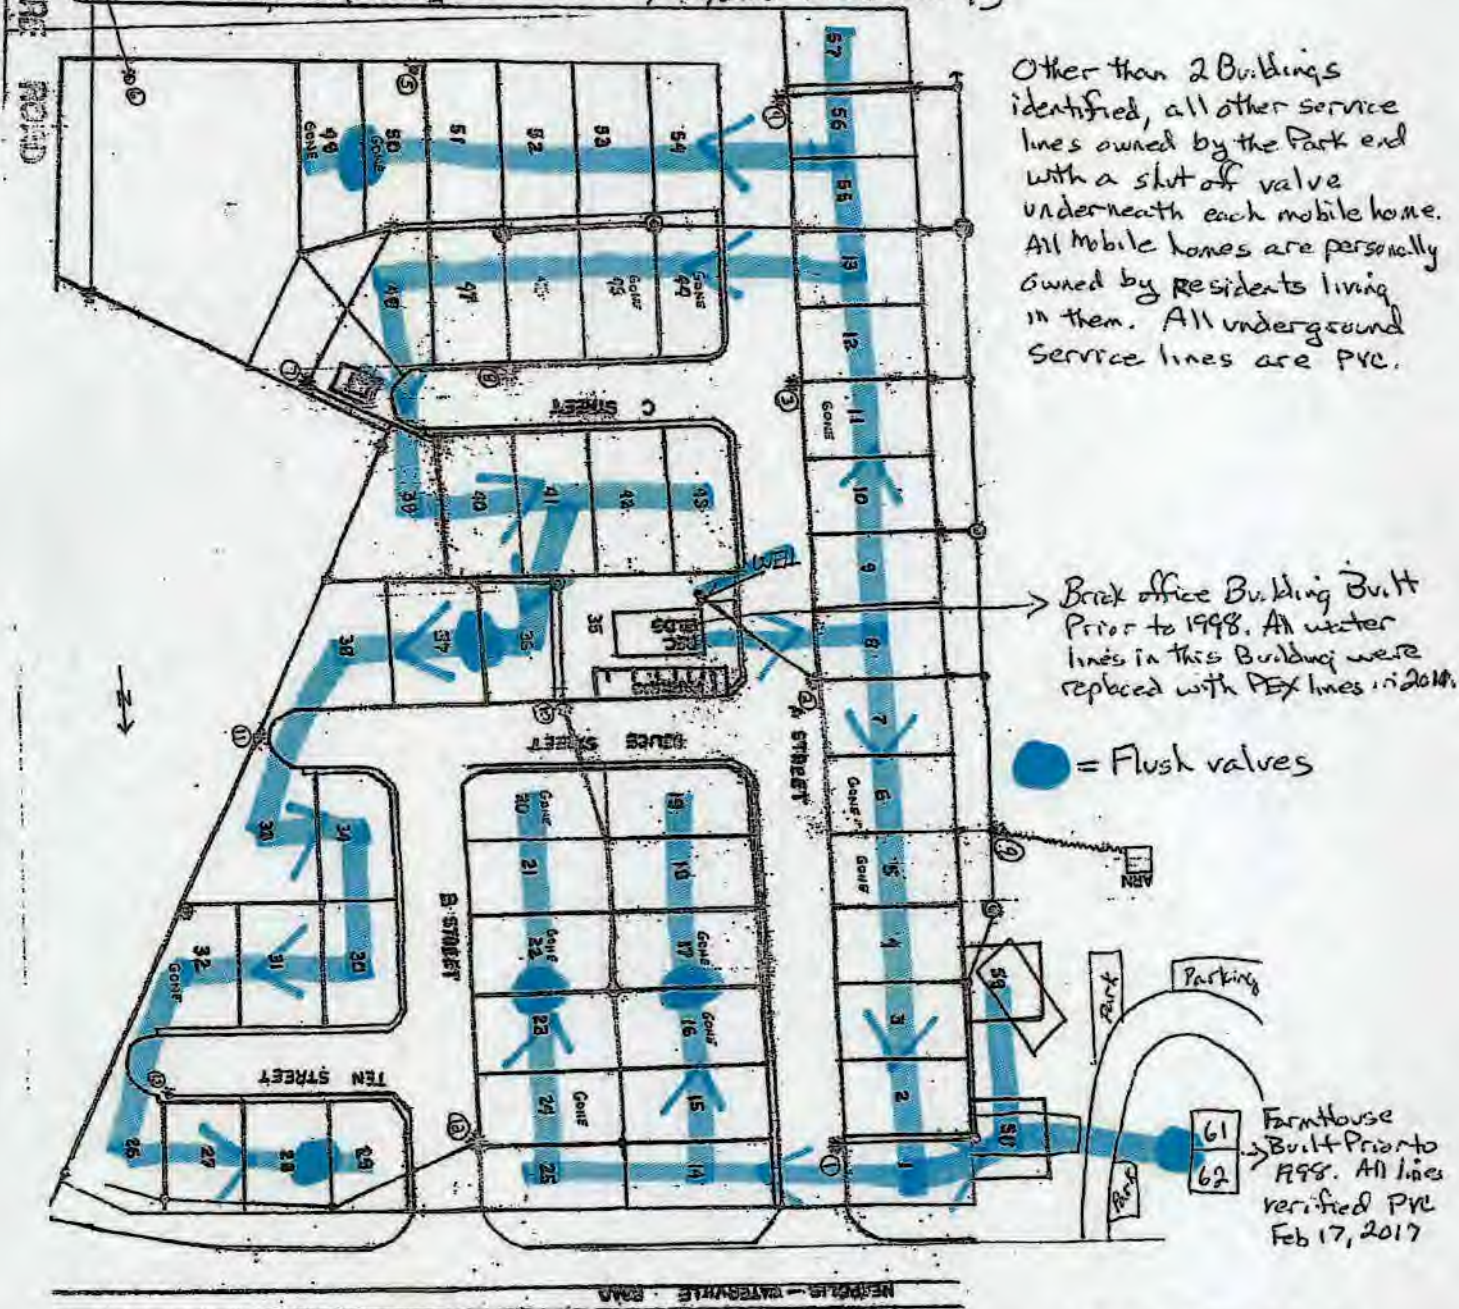 Other than 2 Buildings
identified, all other service
lines owned by the Park end
with a shut off valve
underneath each mobile home.
All Mobile homes are personally
owned by Residents living
in them. All underground
Service lines are PVC.
Brick office Building Built
Prior to 1998. All water
lines in this Building were
replaced with PEX lines in
= Flush valves
Farmhouse
Built Prior to
1998. All lines
verified PVC
Feb 17, 2017
61
62
Parking
Park
Park
59
57
56
55
13
12
11
GONE
10
9
8
7
6
GONE
5
GONE
4
3
2
1
49
GONE
50
GONE
51
52
53
54
48
47
45
GONE
44
GONE
C STREET
39
40
41
42
43
38
37
36
35
STREET
A STREET
B STREET
TEN STREET
20
GONE
21
22
GONE
23
24
GONE
25
19
18
17
GONE
16
GONE
15
14
34
30
31
32
GONE
26
27
28
29
N
ROAD
WATERVILLE ROAD